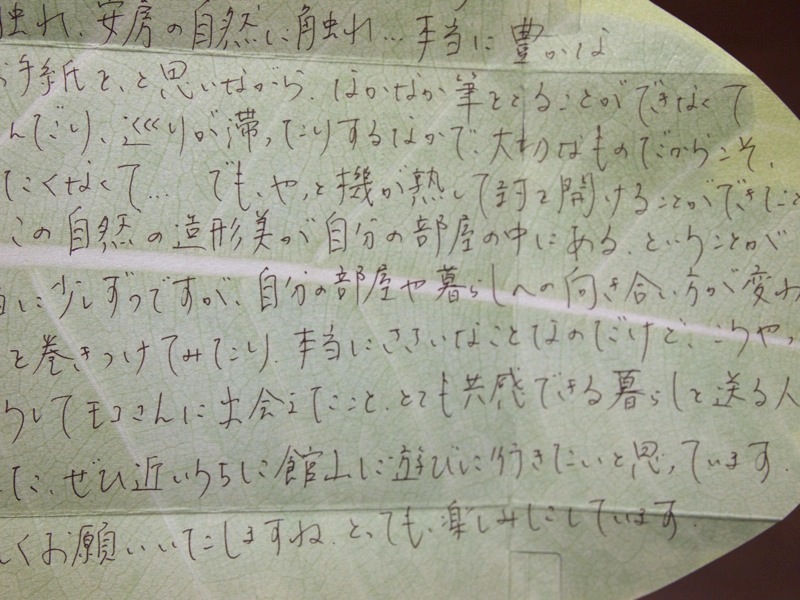 触れ、安房の自然に触れ…本当に豊かな
お手紙を、と思いながら、なかなか筆をとることができなくて
んだり、巡りが滞ったりするなかで、大切なものだからこそ、
たくなくて… でも、やっと機が熟して封を開けることができたこと
この自然の造形美が自分の部屋の中にある、ということが
に少しずつですが、自分の部屋や暮らしへの向き合い方が変わ
と巻きつけてみたり、本当にささいなことなのだけど、こうやっ
うしてモコさんに出会えたこと、とても共感できる暮らしを送る人
た、ぜひ近いうちに館山に遊びに行きたいと思っています。
しくお願いいたしますね。とっても、楽しみにしています。